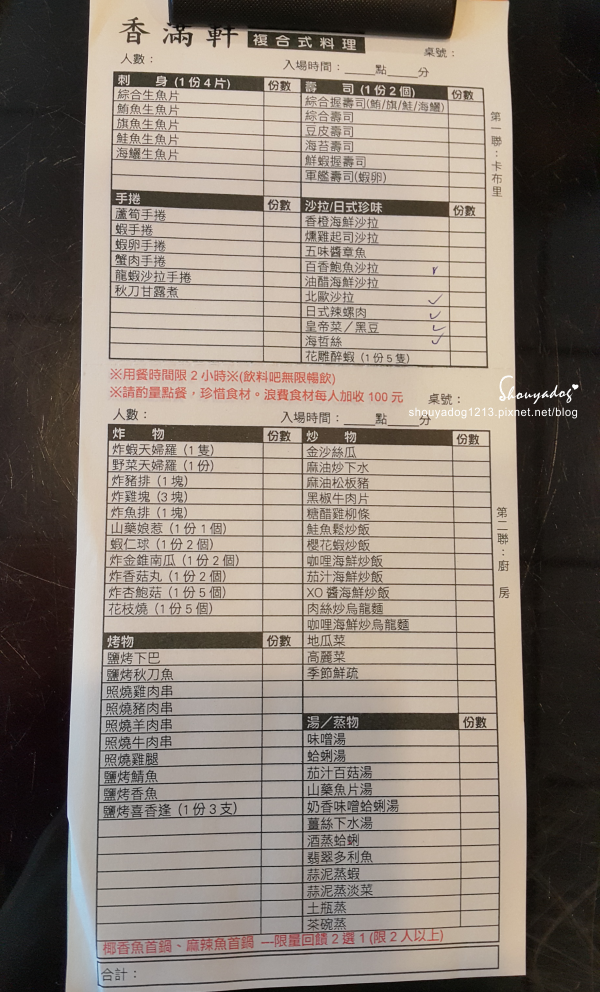 香滿軒 複合式料理 桌號：
人數： 入場時間：____點____分
刺 身 (1份4片) 份數
綜合生魚片
鮪魚生魚片
旗魚生魚片
鮭魚生魚片
海鱺生魚片
壽 司 (1份2個) 份數
綜合握壽司(鮪/旗/鮭/海鱺)
綜合壽司
豆皮壽司
海苔壽司
鮮蝦握壽司
軍艦壽司(蝦卵)
第一聯：卡布里
手捲 份數
蘆筍手捲
蝦手捲
蝦卵手捲
蟹肉手捲
龍蝦沙拉手捲
秋刀甘露煮
沙拉/日式珍味 份數
香橙海鮮沙拉
燻雞起司沙拉
五味醬章魚
百香鮑魚沙拉
油醋海鮮沙拉
北歐沙拉
日式辣螺肉
皇帝菜／黑豆
海哲絲
花雕醉蝦 (1份5隻)
※用餐時間限2小時※(飲料吧無限暢飲)
※請酌量點餐，珍惜食材。浪費食材每人加收100元
桌號：
Shouyadog
shouyadog1213.pixnet.net/blog
人數： 入場時間：____點____分
炸 物 份數
炸蝦天婦羅 (1隻)
野菜天婦羅 (1份)
炸豬排 (1塊)
炸雞塊 (3塊)
炸魚排 (1塊)
山藥娘惹 (1份1個)
蝦仁球 (1份2個)
炸金錐南瓜 (1份2個)
炸香菇丸 (1份2個)
炸杏鮑菇 (1份5個)
花枝燒 (1份5個)
炒 物 份數
金沙絲瓜
麻油炒下水
麻油松板豬
黑椒牛肉片
糖醋雞柳條
鮭魚鬆炒飯
櫻花蝦炒飯
咖哩海鮮炒飯
茄汁海鮮炒飯
XO醬海鮮炒飯
肉絲炒烏龍麵
咖哩海鮮炒烏龍麵
地瓜菜
高麗菜
季節鮮疏
第二聯：廚房
烤物 份數
鹽烤下巴
鹽烤秋刀魚
照燒雞肉串
照燒豬肉串
照燒羊肉串
照燒牛肉串
照燒雞腿
鹽烤鯖魚
鹽烤香魚
鹽烤喜香逢 (1份3支)
湯／蒸物 份數
味噌湯
蛤蜊湯
茄汁百菇湯
山藥魚片湯
奶香味噌蛤蜊湯
薑絲下水湯
酒蒸蛤蜊
翡翠多利魚
蒜泥蒸蝦
蒜泥蒸淡菜
土瓶蒸
茶碗蒸
椰香魚首鍋、麻辣魚首鍋 ---限量回饋2選1(限2人以上)
合計：